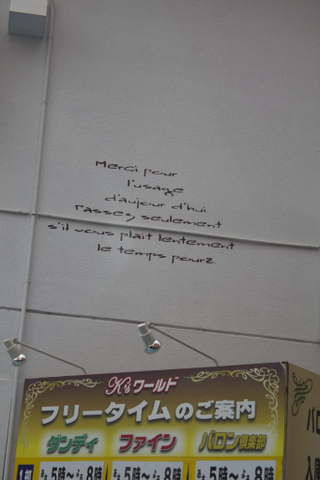 Merci pour
l'usage
d'aujour d'hui
Passez, seulement
s'il vous plait lentement
le temps pour2
K'sワールド
フリータイムのご案内
ダンディ ファイン バロン倶楽部
5時〜 8時 5時〜 8時 5時〜 8時
バロ
入